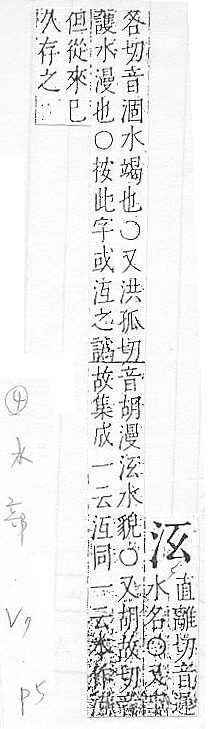 直離切音遲
水名〇又
各切音涸水竭也〇又洪孤切音胡漫水貌〇又胡故切音
護水漫也〇按此字或沍之譌故集成一云沍同一云本作
但從來已
久存之
④ 水部. V9. p5